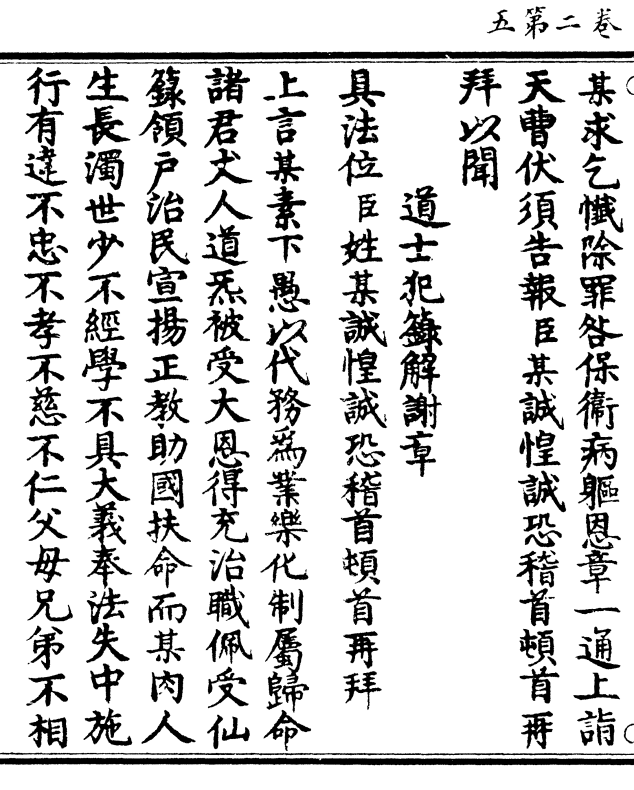 卷二第五
某求乞懺除罪咎保衞病軀恩章一通上詣
天曹伏須告報臣某誠惶誠恐稽首頓首再
拜以聞
道士犯籙解謝章
具法位臣姓某誠惶誠恐稽首頓首再拜
上言某素下愚以代務爲業樂化制屬歸命
諸君丈人道炁被受大恩得充治職佩受仙
籙領户治民宣揚正教助國扶命而某肉人
生長濁世少不經學不具大義奉法失中施
行有違不忠不孝不慈不仁父母兄弟不相